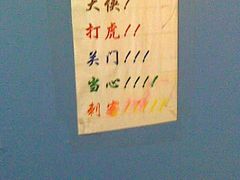 大侠!
打虎!!
关门!!!
当心!!!!
刺客!!!!!